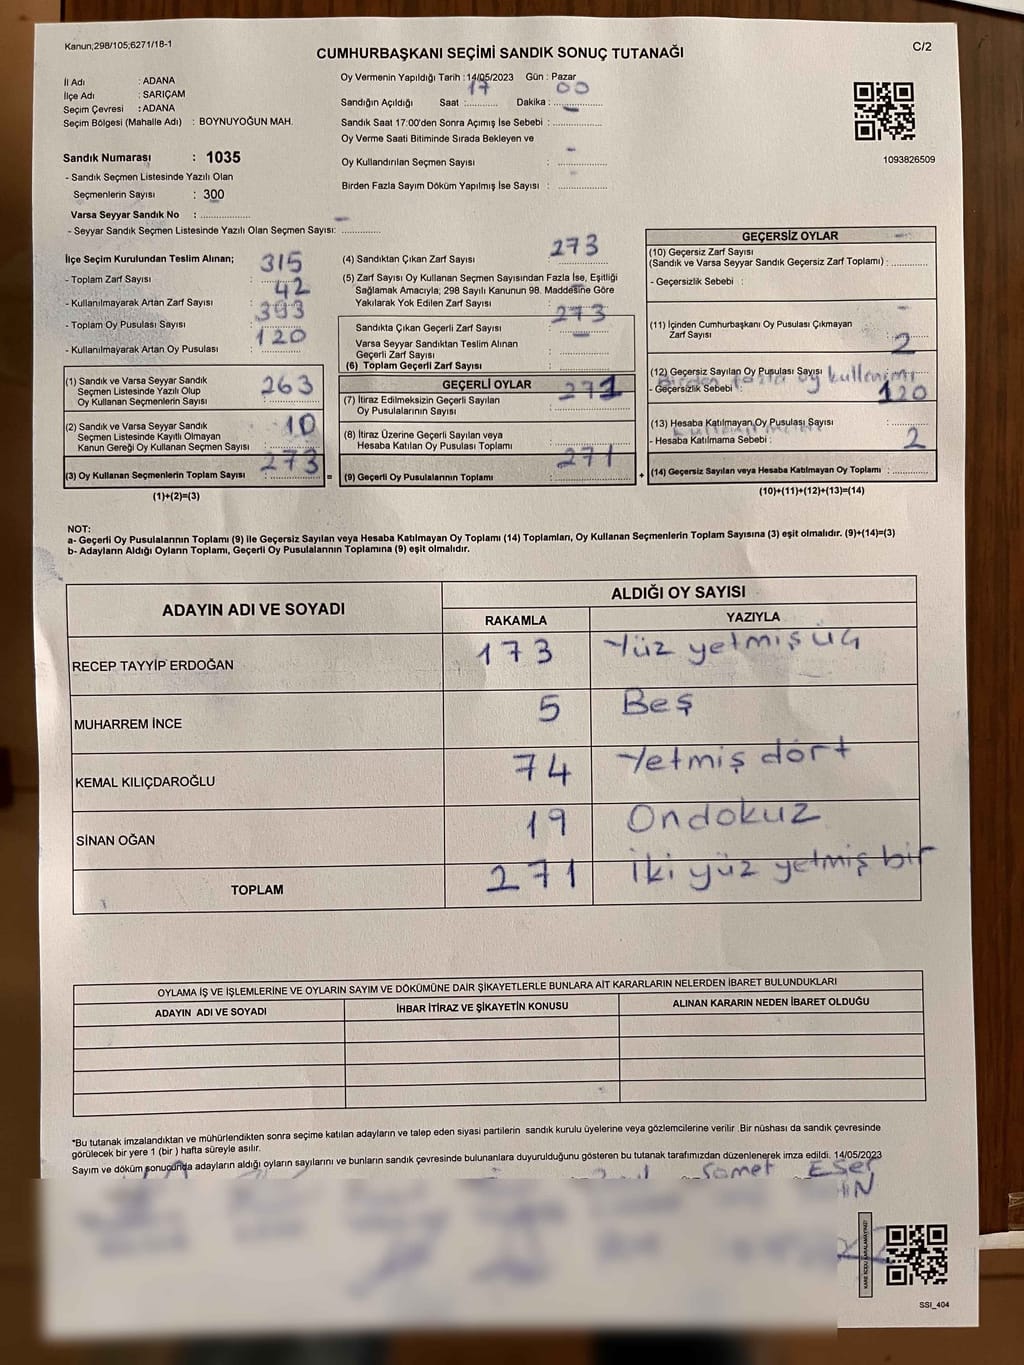 Kanun;298/105;6271/18-1
C/2
CUMHURBAŞKANI SEÇİMİ SANDIK SONUÇ TUTANAĞI
İl Adı : ADANA
İlçe Adı : SARIÇAM
Seçim Çevresi : ADANA
Seçim Bölgesi (Mahalle Adı) : BOYNUYOĞUN MAH.
Sandık Numarası : 1035
- Sandık Seçmen Listesinde Yazılı Olan
Seçmenlerin Sayısı : 300
Varsa Seyyar Sandık No : ..................
- Seyyar Sandık Seçmen Listesinde Yazılı Olan Seçmen Sayısı: .............. -
Oy Vermenin Yapıldığı Tarih :14/05/2023 Gün : Pazar
Sandığın Açıldığı Saat : 17 Dakika : 00
Sandık Saat 17:00'den Sonra Açımış İse Sebebi : -
Oy Verme Saati Bitiminde Sırada Bekleyen ve
Oy Kullandırılan Seçmen Sayısı : -
Birden Fazla Sayım Döküm Yapılmış İse Sayısı : -
1093826509
İlçe Seçim Kurulundan Teslim Alınan;
- Toplam Zarf Sayısı : 315
- Kullanılmayarak Artan Zarf Sayısı : 42
- Toplam Oy Pusulası Sayısı : 393
- Kullanılmayarak Artan Oy Pusulası : 120
(1) Sandık ve Varsa Seyyar Sandık
Seçmen Listesinde Yazılı Olup
Oy Kullanan Seçmenlerin Sayısı : 263
(2) Sandık ve Varsa Seyyar Sandık
Seçmen Listesinde Kayıtlı Olmayan
Kanun Gereği Oy Kullanan Seçmen Sayısı : 10
(3) Oy Kullanan Seçmenlerin Toplam Sayısı : 273 =
(1)+(2)=(3)
(4) Sandıktan Çıkan Zarf Sayısı : 273
(5) Zarf Sayısı Oy Kullanan Seçmen Sayısından Fazla İse, Eşitliği
Sağlamak Amacıyla; 298 Sayılı Kanunun 98. Maddesine Göre
Yakılarak Yok Edilen Zarf Sayısı :
Sandıkta Çıkan Geçerli Zarf Sayısı : 273
Varsa Seyyar Sandıktan Teslim Alınan
Geçerli Zarf Sayısı : -
(6) Toplam Geçerli Zarf Sayısı :
GEÇERLİ OYLAR
(7) İtiraz Edilmeksizin Geçerli Sayılan
Oy Pusulalarının Sayısı : 271
(8) İtiraz Üzerine Geçerli Sayılan veya
Hesaba Katılan Oy Pusulası Toplamı :
(9) Geçerli Oy Pusulalarının Toplamı : 271 +
GEÇERSİZ OYLAR
(10) Geçersiz Zarf Sayısı
(Sandık ve Varsa Seyyar Sandık Geçersiz Zarf Toplamı) : -
- Geçersizlik Sebebi :
(11) İçinden Cumhurbaşkanı Oy Pusulası Çıkmayan
Zarf Sayısı : -
(12) Geçersiz Sayılan Oy Pusulası Sayısı : 2
- Geçersizlik Sebebi : Birden fazla oy kullanımı
(13) Hesaba Katılmayan Oy Pusulası Sayısı : 120
- Hesaba Katılmama Sebebi :
(14) Geçersiz Sayılan veya Hesaba Katılmayan Oy Toplamı : 2
(10)+(11)+(12)+(13)=(14)
NOT:
a- Geçerli Oy Pusulalarının Toplamı (9) ile Geçersiz Sayılan veya Hesaba Katılmayan Oy Toplamı (14) Toplamları, Oy Kullanan Seçmenlerin Toplam Sayısına (3) eşit olmalıdır. (9)+(14)=(3)
b- Adayların Aldığı Oyların Toplamı, Geçerli Oy Pusulalarının Toplamına (9) eşit olmalıdır.
ADAYIN ADI VE SOYADI
ALDIĞI OY SAYISI
RAKAMLA YAZIYLA
RECEP TAYYİP ERDOĞAN 173 Yüz yetmiş üç
MUHARREM İNCE 5 Beş
KEMAL KILIÇDAROĞLU 74 Yetmiş dört
SİNAN OĞAN 19 Ondokuz
TOPLAM 271 İki yüz yetmiş bir
OYLAMA İŞ VE İŞLEMLERİNE VE OYLARIN SAYIM VE DÖKÜMÜNE DAİR ŞİKAYETLERLE BUNLARA AİT KARARLARIN NELERDEN İBARET BULUNDUKLARI
ADAYIN ADI VE SOYADI İHBAR İTİRAZ VE ŞİKAYETİN KONUSU ALINAN KARARIN NEDEN İBARET OLDUĞU
*Bu tutanak imzalandıktan ve mühürlendikten sonra seçime katılan adayların ve talep eden siyasi partilerin sandık kurulu üyelerine veya gözlemcilerine verilir .Bir nüshası da sandık çevresinde
görülecek bir yere 1 (bir ) hafta süreyle asılır.
Sayım ve döküm sonucunda adayların aldığı oyların sayılarını ve bunların sandık çevresinde bulunanlara duyurulduğunu gösteren bu tutanak tarafımızdan düzenlenerek imza edildi. 14/05/2023
Samet Eser
KARE KODU KARALAMAYINIZ!
SSI_404